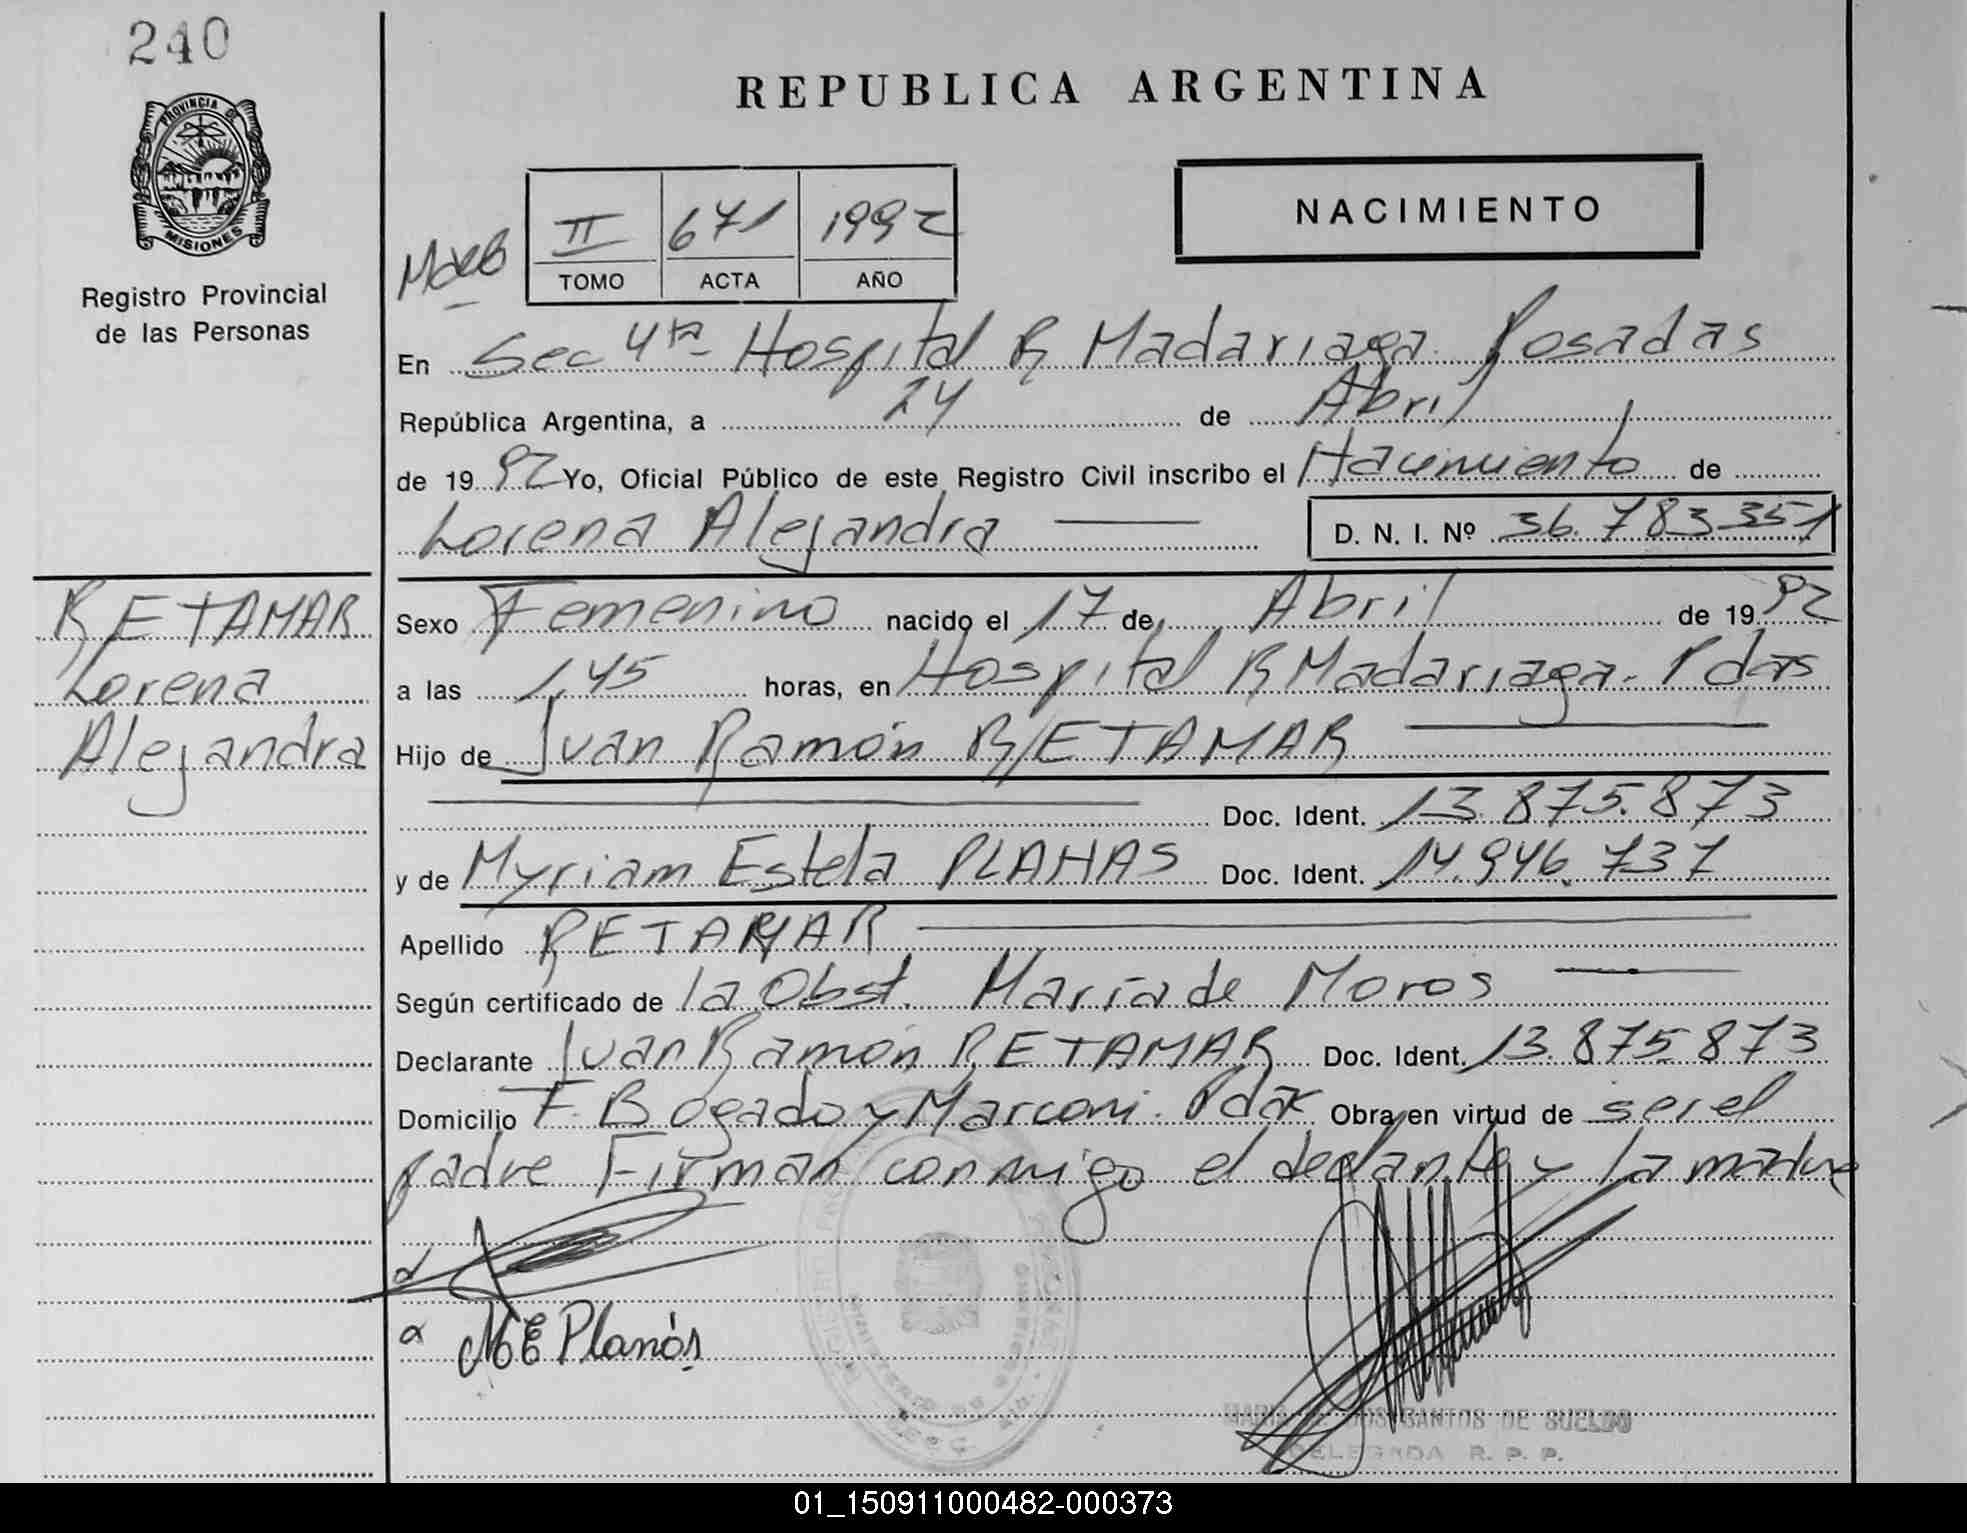 240
REPUBLICA ARGENTINA
PROVINCIA DE
MISIONES
Registro Provincial
de las Personas
NACIMIENTO
II 671 1992
TOMO ACTA AÑO
En Sec 4ta Hospital R Madariaga Posadas
República Argentina, a 24 de Abril
de 1992 Yo, Oficial Público de este Registro Civil inscribo el Nacimiento de
Lorena Alejandra D. N. I. Nº 36.783351
RETAMAR
Lorena
Alejandra
Sexo Femenino nacido el 17 de Abril de 1992
a las 1,45 horas, en Hospital R Madariaga - Pdas
Hijo de Juan Ramón RETAMAR
Doc. Ident. 13.875.873
y de Myriam Estela PLANAS Doc. Ident. 14.946.737
Apellido RETAMAR
Según certificado de la Obst. María de Moros
Declarante Juan Ramón RETAMAR Doc. Ident. 13.875873
Domicilio F. Bogado y Marconi. Pdas Obra en virtud de ser el
padre Firman conmigo el declante y la madre
M E Planás
DOS SANTOS DE SUELDO
DELEGADA R. P. P.
01_150911000482-000373